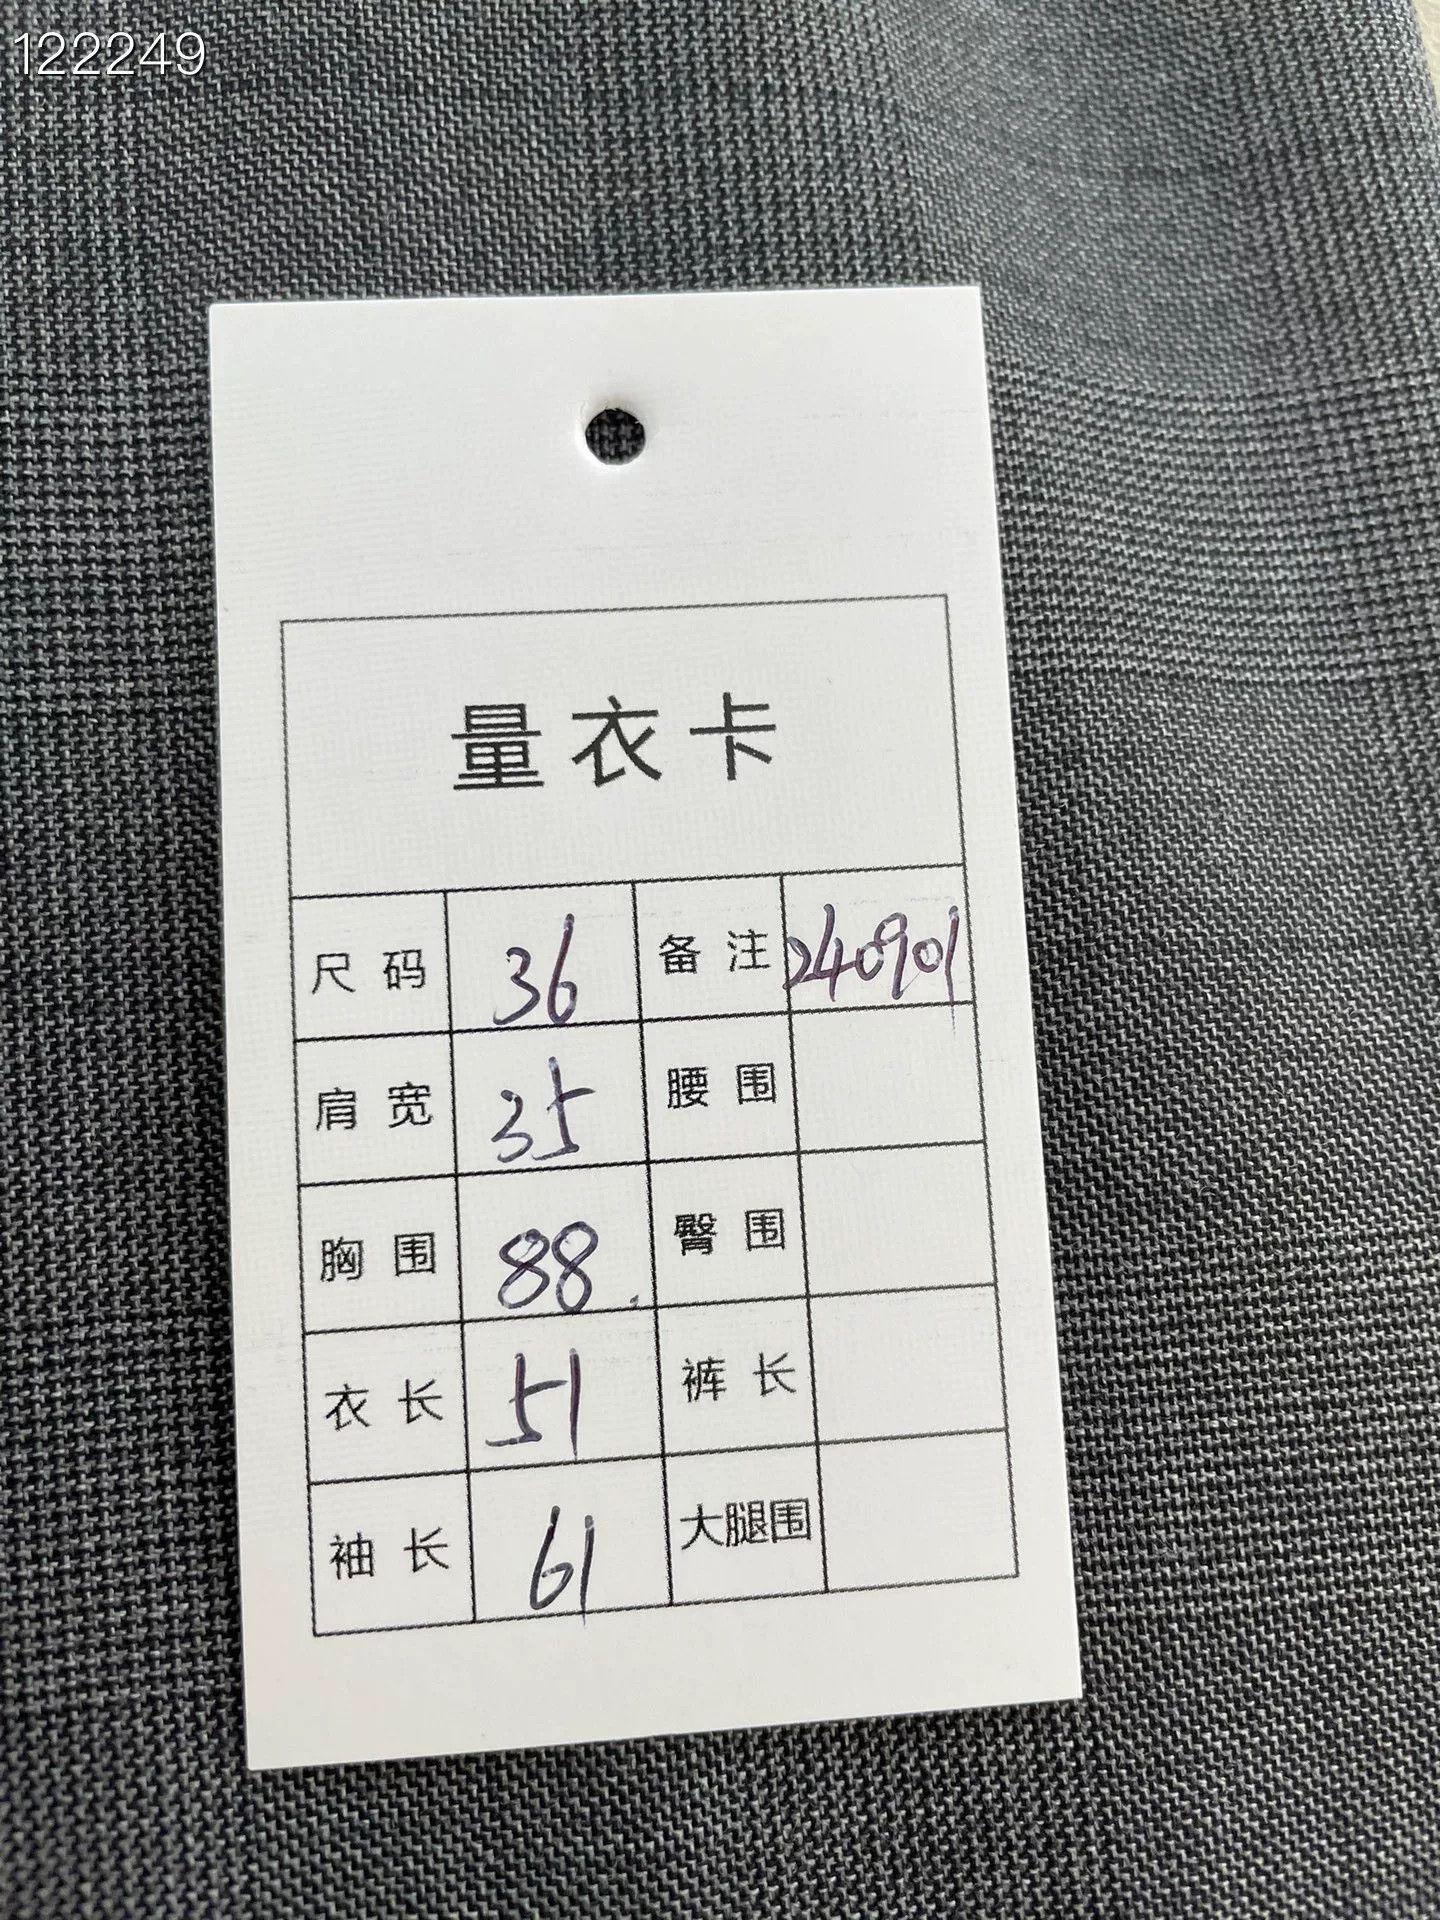 122249
量衣卡
尺码 36 备注 240901
肩宽 35 腰围
胸围 88. 臀围
衣长 51 裤长
袖长 61 大腿围